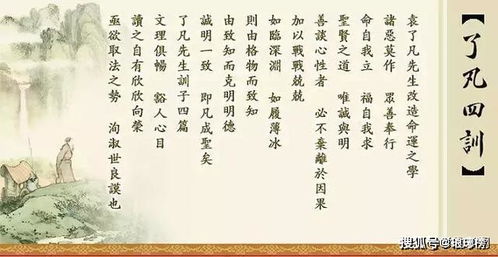 【了凡四訓】
袁了凡先生改造命運之學
諸惡莫作 眾善奉行
命自我立 福自我求
聖賢之道 唯誠與明
善談心性者 必不棄離於因果
加以戰戰兢兢
如臨深淵 如履薄冰
則由格物而致知
由致知而克明明德
誠明一致 即凡成聖矣
了凡先生訓子四篇
文理俱暢 豁人心目
讀之自有欣欣向榮
亟欲取法之勢 洵淑世良謨也
搜狐号@